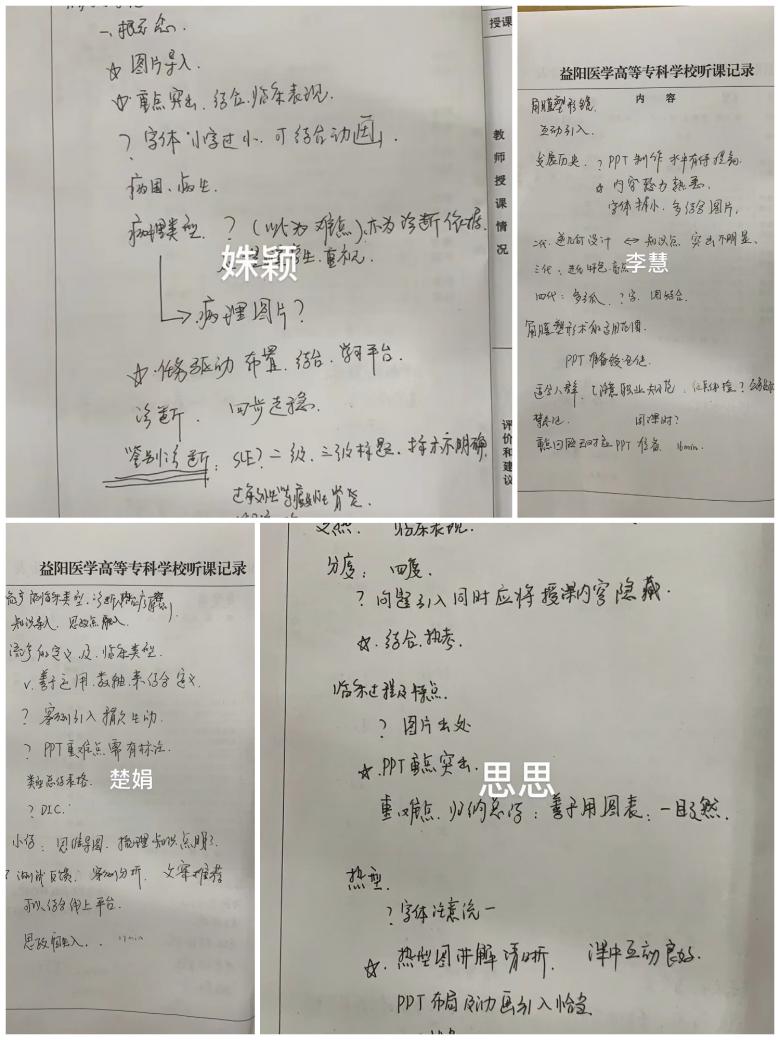 一、概念.
☆ 图片导入.
☆ 重点突出、结合临床表现.
? 字体 小字过小、可结合动图
病因、病生.
病理类型. ? (以此为难点)、亦为诊断依据.
→ 病理图片?
☆ 任务驱动 布置、结合、学习平台.
诊断、四步走稳.
鉴别诊断: SLE? 二级、三级标题、标示不明确.
过敏性紫癜性肾炎
授课
教师授课情况
评价和建议
姝颖
益阳医学高等专科学校听课记录
内 容
角膜塑形镜
互动引入.
发展历史. ? PPT 制作 水平有待提高.
☆ 内容熟悉.
字体 小、多结合图片.
二代: 逆几何设计 ⇔ 知识点 突出不明显.
三代:
四代: ? 字 图结合.
角膜塑形术的适用范围.
PPT
适合人群
重点回顾 应 PPT 准备. 16min.
李慧
益阳医学高等专科学校听课记录
知识导入、思政点融入.
流产的定义及临床类型.
√. 善于运用数轴来结合定义.
? 案例引入稍欠生动.
? PPT重难点需有标注.
类型总结表格.
? DIC.
小结: 思维导图、梳理知识点明了.
? 测试反馈、案例分析、文案推荐
可以结合线上平台.
思政融入. . 17min
楚娟
临床表现.
分度: 四度.
? 问题引入同时应将授课内容隐藏.
☆. 结合执考.
临床过程及特点.
? 图片出处
☆. PPT重点突出.
重难点、归纳总结: 善于用图表: 一目了然.
热型.
? 字体注意统一
☆. 热型图讲解清晰、课中互动良好.
PPT布局及动画引入恰当
思思